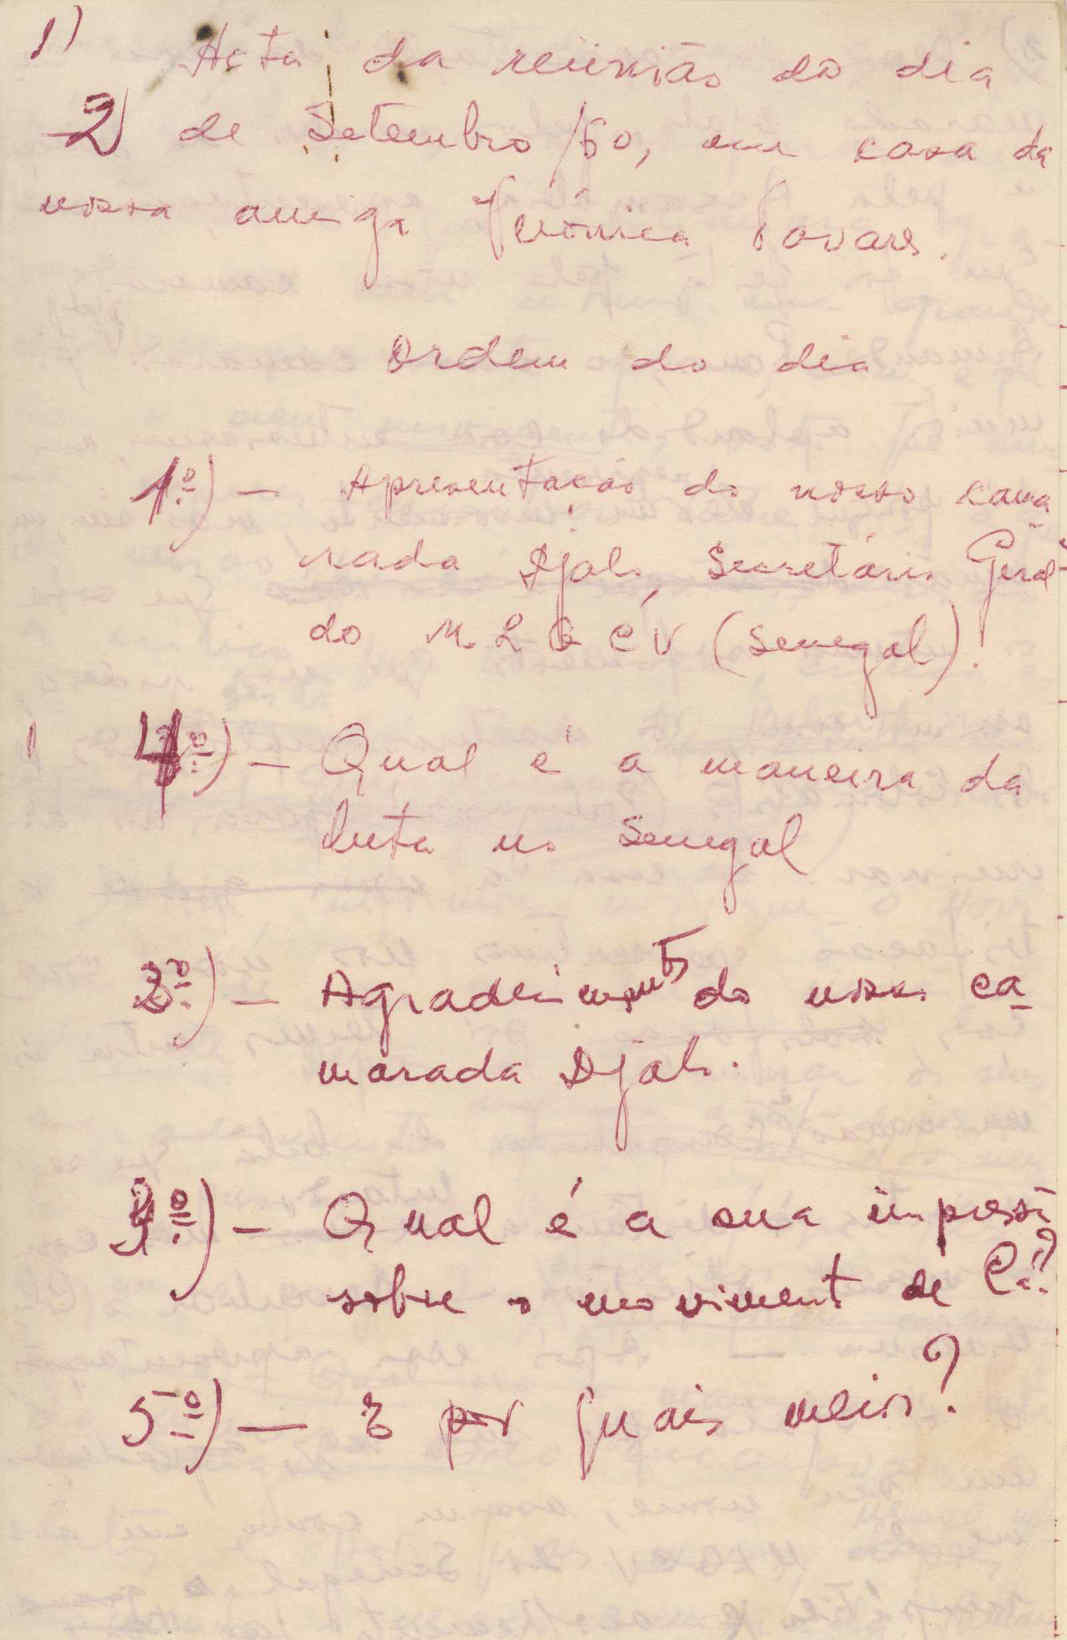 1)
Acta da reünião do dia
2 de Setembro/60, em casa da
nossa amiga Verónica Tavares.
Ordem do dia
1º) — Apresentação do nosso cama
rada Djalo, Secretário Geral
do M L G C V (Senegal).
4º) — Qual é a maneira da
luta no Senegal
2º) — Agradecimento do nosso ca
marada Djalo.
3º) — Qual é a sua impressã
sobre o moviment de Cá?
5º) — E por quais meios?